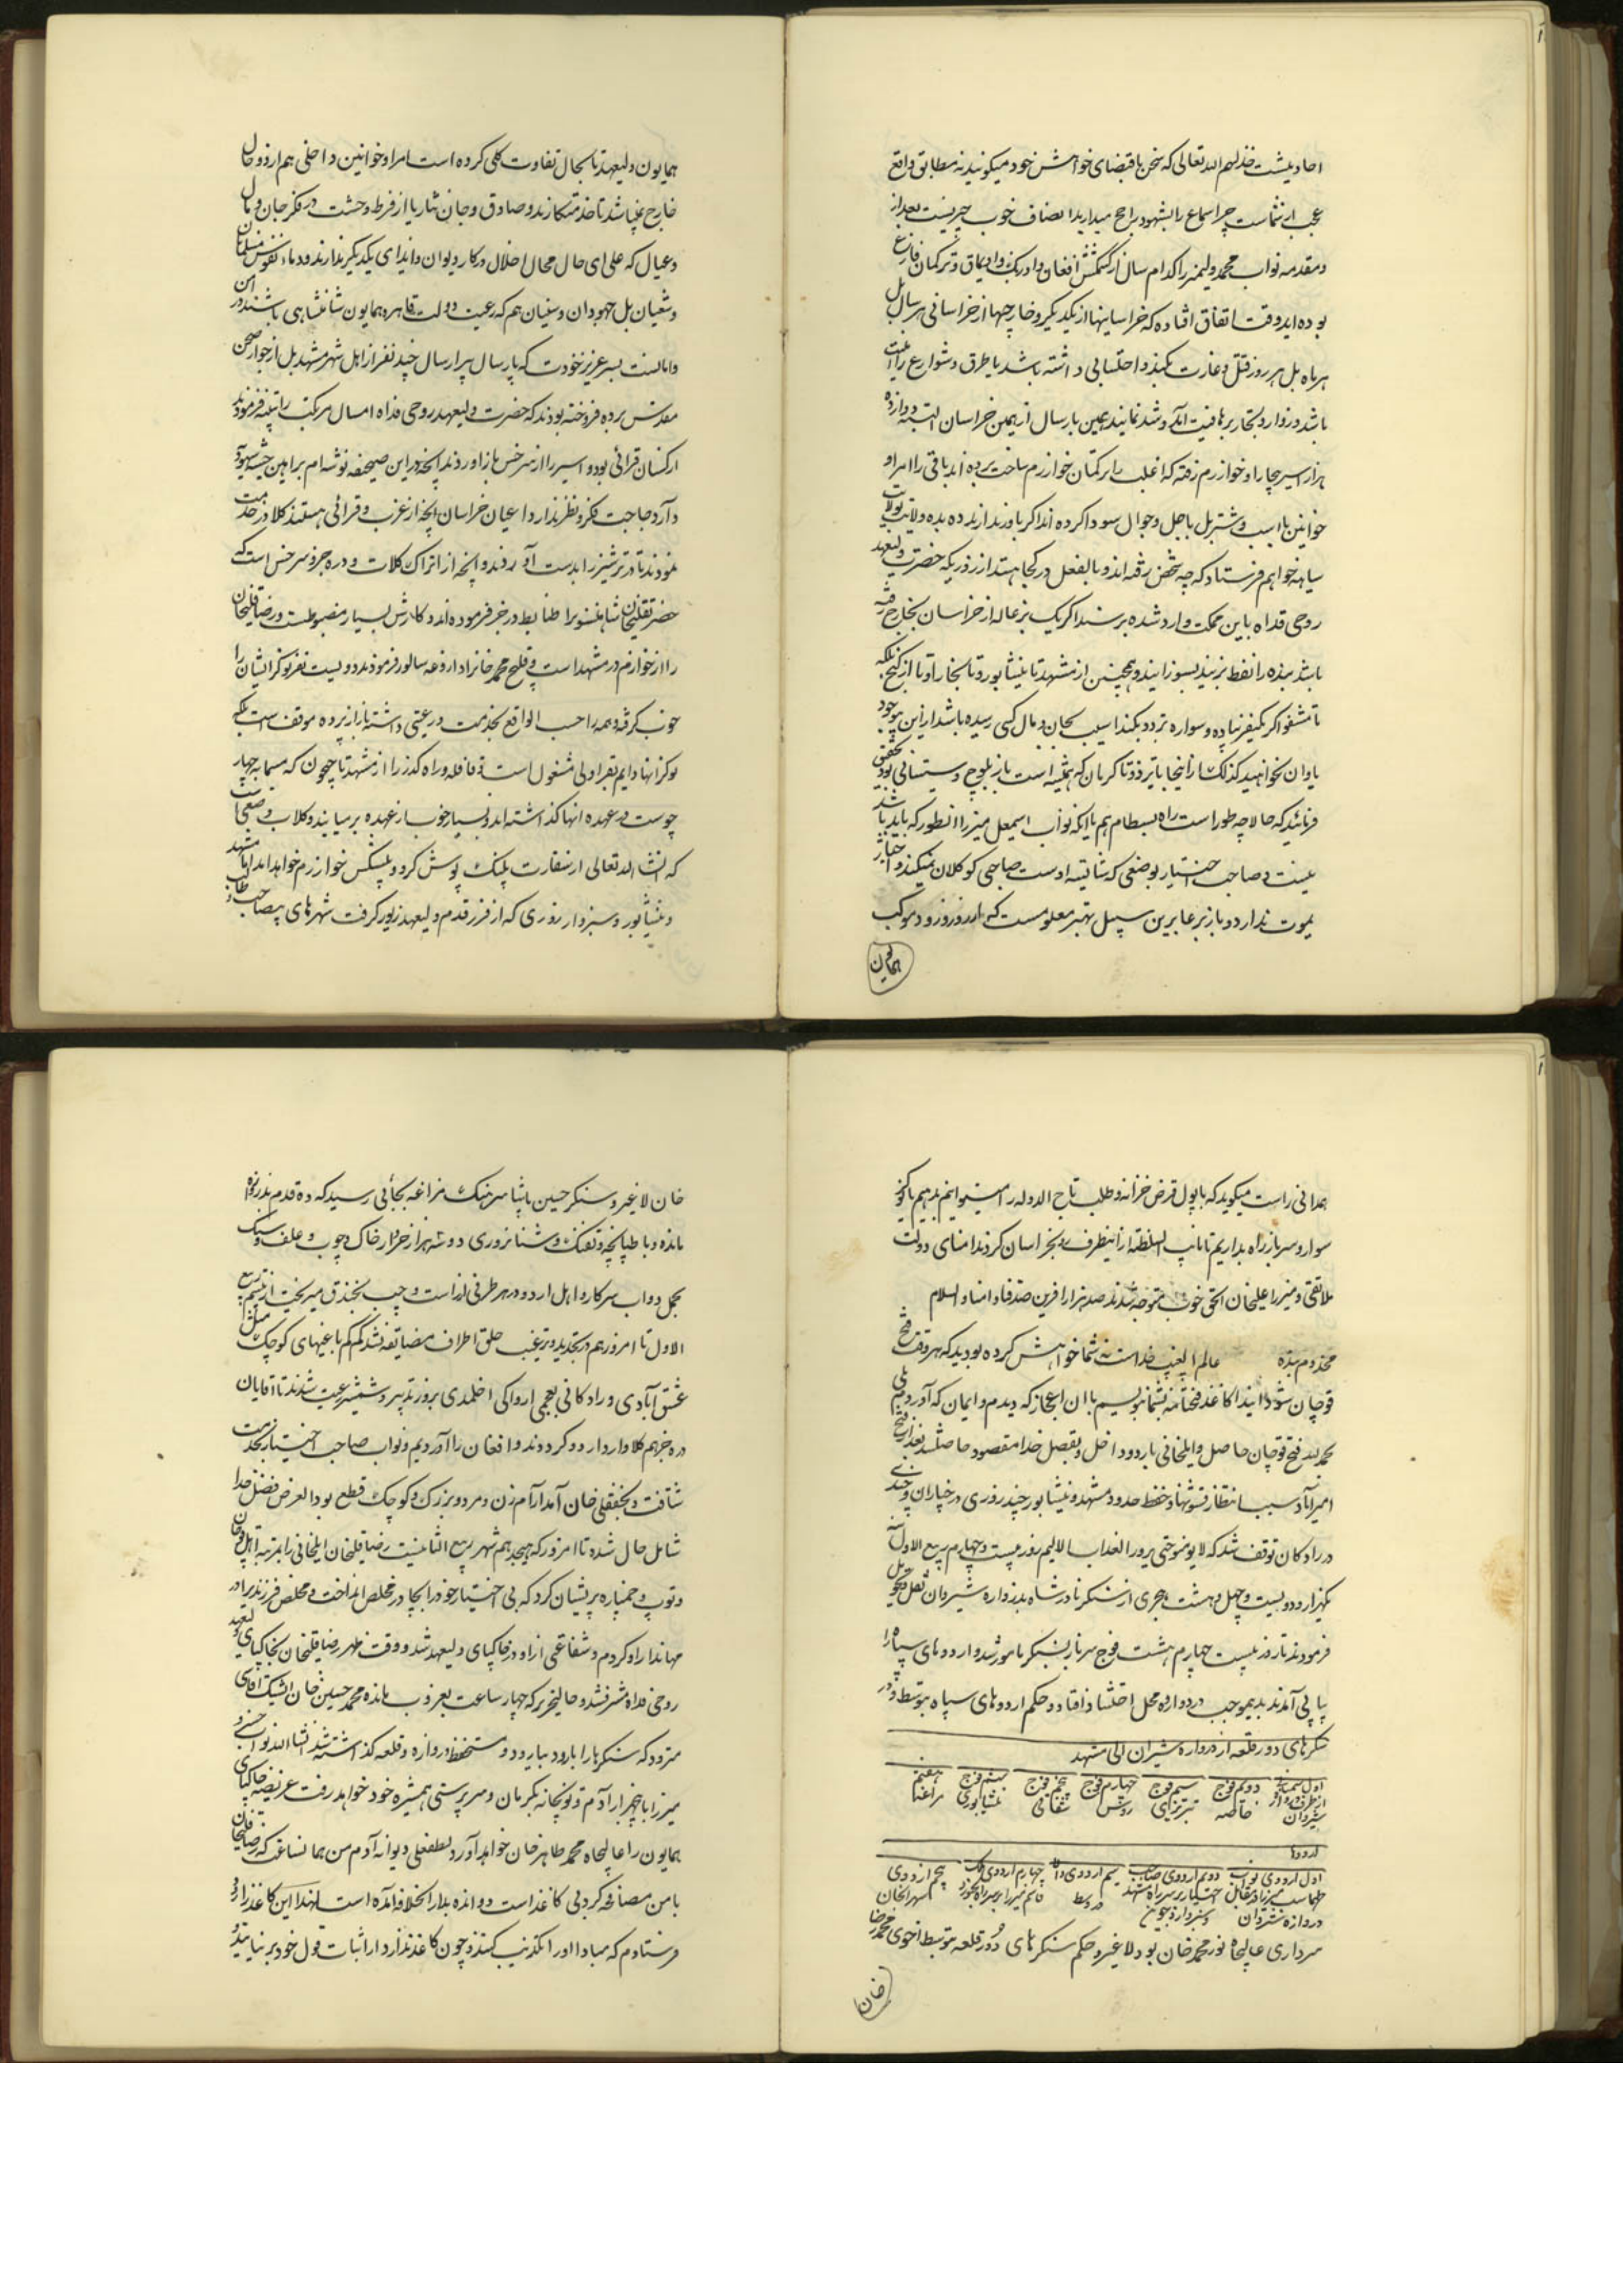 احادیثیست خذلهم الله تعالی که سخن باقتضای خواهش خود میگویند نه مطابق واقع
عجب از شماست چرا سماع را بشهود راجح میدارید انصاف خوب چیزیست بعد از
و مقدمه نواب محمد ولیمیرزا کدام سال از کشمکش افغان و اوزبک و اویماق و ترکمان فارغ
بوده‌اید وقت اتفاق افتاده که خراسانیها از یکدیگر و خارجها از خراسانی هر سال بل
هر ماه بل هر روز قتل و غارت نکنند و احتسابی داشته باشد یا طرق و شوارع را امنیت
باشد و زوار و تجار برفاهیت آمد و شد نمایند همین پارسال از همین خراسان البته دوازده
هزار اسیر بخارا و خوارزم رفته که اغلب را ترکمان خوارزم تاخت برده‌اند باقی را امرا و
خوانین با اسب و شتر بل با جل و جوال سودا کرده‌اند اگر باور ندارند ده بده ولایت بولایت
سیاهه خواهم فرستاد که چه شخص رفته‌اند و بالفعل در کجا هستند از روزیکه حضرت ولیعهد
روحی فداه باین مملکت وارد شده پرسند اگر یک بزغاله از خراسان بخارج رفته
باشد بنده را نفط بزنند بسوزانند و همچنین از مشهد تا نیشابور و تا بخارا و تا
تا مشغوا اگر یکنفر پیاده و سواره تردد بکند آسیب بجان و مال کسی رسیده باشد از این
یاوران نخواهید کذلک از اینجا تا یزد و تا کرمان که همیشه است باز بلوچ و سیستانی بود تحقیق
فرمائید که حالا چه طور است راه بسطام هم با اینکه نواب اسمعیل میرزا انطور که باید باشد
نیست و صاحب اختیار بوصفی که شائبه اوست صاحبی کوکلان نمیکند و اختیار
یموت ندارد و باز بر عابرین سبیل بهتر معلومست که از روز ورود موکب
همایون
همایون ولیعهد تا بحال تفاوت کلی کرده است امرا و خوانین داخلی هم از دو حال
خارج نمیباشد تا خدمتکارند و صادق و جان نثار یا از فرط وحشت در فکر جان و مال
و عیال که علی ای حال مجال اخلال در کار دیوان و ایذای یکدیگر ندارند و دماء و نفوس مسلمانان
و شیعیان بل جهودان و سنیان هم که رعیت دولت قاهره همایون شاهنشاهی باشند در امن
و امانست پسر عزیز خودت که پارسال پیرارسال چند نفر از اهل شهر مشهد بل از جوار صحن
مقدس برده فروخته بودند که حضرت ولیعهد روحی فداه امسال مرتکب را تنبیه فرمودند
از کسان قرائی بود و اسیر را از سرخس باز آوردند آنچه در این صحیفه نوشته‌ام براهین
دارد حاجت فکر و نظر ندارد اعیان خراسان آنچه از عرب و قرائی هستند کلا در خدمت
نمودند تا در ترشیز را بدست آوردند و آنچه از اتراک کلات و دره جز و سرخس است که
حضر تقلیخان شاهسونرا ضابط در جز فرموده‌اند و کارش بسیار مضبوطست و رضاقلیخان
را از خوارزم در مشهد است و فتح محمد خانرا داروغه سالور فرمودند دویست نفر نوکر ایشان را
خوب گرفته و همه را حسب الواقع بخدمت و رعیتی داشته باز از برده موقف است بلکه
نوکر انها دایم بقراولی مشغول است و قافله و راه گذر را از مشهد تا جیحون که مسما به چهار
جوست در عهده انها گذاشته‌اند و بسیار خوب از عهده بر میایند و کلاب و ضعفاء
که انشاالله تعالی از سفارت پلنگ پوش کرد و پیشکش خوارزم خواهد امد اما مشهد
و نیشابور و سبزوار روزی که از فر قدم ولیعهد زیور گرفت شهرهای بیصاحب
همدانی راست میگوید که با پول قرض خزانه و طلب تاج الدوله را میتوانیم بدهیم یا کوز
سوار و سرباز راه بداریم تا نایب السلطنه از انیطرف رو بخراسان کردند امنای دولت
ملا تقی و میرزا علیخان الحق خوب متوجه شدند صد هزار آفرین صدقنا و امنا والسلام
مخدوم بنده عالم الغیب خداست نه شما خواهش کرده بودید که هر وقت فتح
قوچان شود ایندا کاغذ فتحنامه بشما بنویسم با ان اعجاز که دیدم و ایمان که آوردم بلی
محمد الله فتح قوچان حاصل و ایلخانی باردو داخل و بفضل خدا مقصود حاصل شد بعد از فتح
امیرآباد سبب انتظار قشونها و حفظ حدود مشهد و نیشابور چند روزی در خپاران و چندی
در رادکان توقف شد که لا یؤمنون حتی یروا العذاب الالیم روز بیست و چهارم ربیع الاول
یکهزار و دویست و چهل و هشت هجری از سنگر نادر شاه بدروازه شیروان نقل و تحویل
فرمودند تا روز بیست چهارم هشت فوج سرباز بسنگر مامور شد و اردوهای سپاه را
پیاپی آمدند بدیموجب در دوازده محل اتفاق افتاد و حکم اردوهای سپاه بتوسط
سنگرهای دور قلعه از دروازه شیروان الی مشهد
اول سمنانی از طرف دروازه شیروان
دویم فوج خاصه
سیم فوج تبریزی
چهارم فوج روس
پنجم فوج شقاقی
ششم فوج نیشابوری
هفتم مراغه
اردوها
اول اردوی نواب طهماسب میرزا در مقابل دروازه شیروان
دویم اردوی صاحب اختیار بر سر راه مشهد و سبزوار و جوین
سیم اردوی والا در وسط
چهارم اردوی ملک قاسم میرزا بر سر راه بجنورد
پنجم اردوی سهرابخان
سرداری عالیجاه نور محمد خان بود لا غیر و حکم سنگرهای دور قلعه بتوسط اخوی محمد رضا
خان
خان لا غیر و سنگر حسین پاشا سرهنگ مراغه بجائی رسید که ده قدم بدروازه
مانده و با طپانچه و تفنگ و شنا نروزی دو سه هزار خروار خاک و چوب و علف و سنگ
بحمل دواب سرکار و اهل اردو در هر طرفی از راست و چپ بخندق میریخت از بیستم ربیع
الاول تا امروز هم در تجدید و ترغیب خلق اطراف مضایقه نشد کم کم باغیهای کوچک مثل
عشق آبادی و رادکانی بعجمی اروا کی اخلمدی بروز تدبیر و شمشیر رعیت شدند تا اقایان
دره جز هم کلا وارد اردو کردند و افغان را آوردیم و نواب صاحب اختیار بخدمت
شتافت و نجفقلی خان آمد ارام زن و مرد و بزرگ و کوچک قطع بود الغرض فضل خدا
شامل حال شده تا امروز که هیجدهم شهر ربیع الثانیست رضاقلیخان ایلخانی را بمرتبه اهل قوچان
و توپ و خمپاره پریشان کرد که بی اختیار خود را بچادر مخلص انداخت و مخلص فرزند برادر
مهماندار او کردم و شفاعتی از او در خاکپای ولیعهد شد و وقت ظهر رضاقلیخان بخاکپای ولیعهد
روحی فداه مشرف شد و حالیکه تحریر که چهار ساعت بغروب مانده محمد حسین خان ایشیک آقاسی
میرود که سنگرها را بارود بیاورد و مستحفظ دروازه و قلعه گذاشته شد انشاالله نواب خسرو
میرزا با پنجهزار آدم و توپخانه بکرمان و سرپرستی همشیره خود خواهد رفت عریضه خاکپای
همایون را عالیجاه محمد طاهر خان خواهد آورد لطفعلی دیوانه آدم من همانساعت که رضاقلیخان
با من مصافحه کرد بی کاغذ است دوانده بدار الخلافه آمده است لهذا این کاغذ را زود
فرستادم که مبادا او را تکذیب کنند و چون کاغذ ندارد از اثبات قول خود بر نیاید و